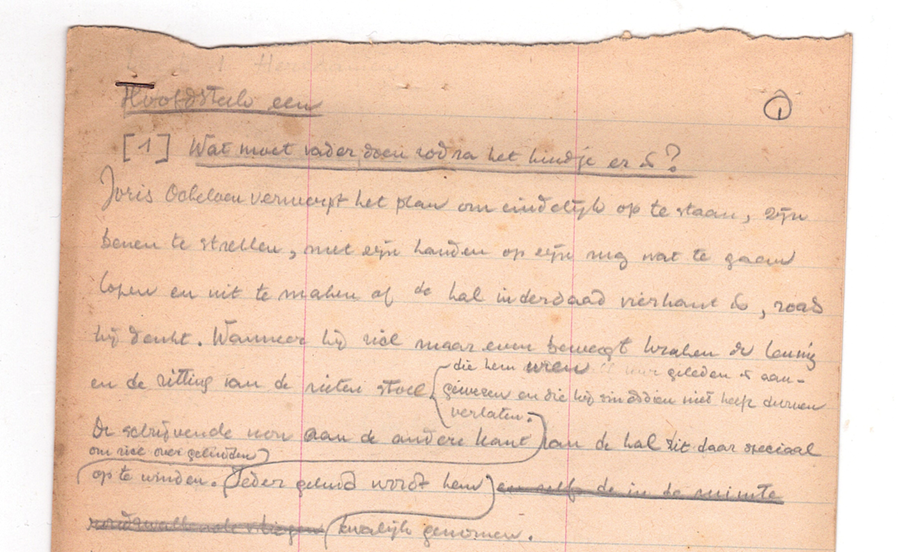 Hoofdstuk een
1
[1] Wat moet vader doen zodra het kindje er is?
Joris Ockeloen verwerpt het plan om eindelijk op te staan, zijn
benen te strekken, met zijn handen op zijn rug wat te gaan
lopen en uit te maken of de hal inderdaad vierkant is, zoals
hij denkt. Wanneer hij zich maar even beweegt kraken de leuning
en de zitting van de rieten stoel
die hem uren geleden is aan-
gewezen en die hij sindsdien niet heeft durven
verlaten.
De schrijvende non aan de andere kant van de hal zit daar speciaal
om zich over geluiden
op te winden. Ieder geluid wordt hem en zelfs de in de ruimte
kwalijk genomen.